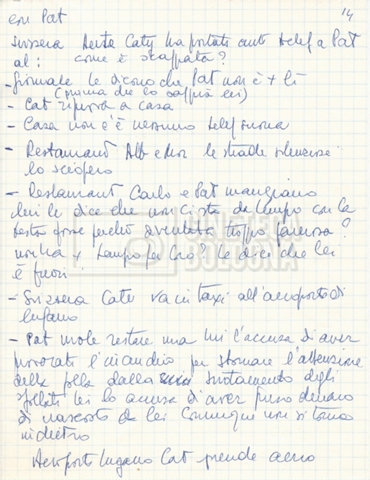 14
con Pat
Svizzera Caty ha portato auto telef a Pat
al: come è scappata?
- giornale le dicono che Pat non è + lì
(prima che lo sappia lei)
- Cat riposa a casa
- Casa non c'è nessuno telef suona
- Restaurant Alb e le strade silenziose
lo sciopero
- Restaurant Carlo e Pat mangiano
lui le dice che non ci sta da tempo con la
testa forse perché diventata troppo famosa?
non ha + tempo per loro? le dici che lei
è fuori
- Svizzera Cate va in taxi all'aeroporto di
Lugano
- Pat vuole restare ma lui l'accusa di aver
provocato l'incendio per stornare l'attenzione
della folla dallo smistamento degli
sfollati lei lo accusa di aver preso denaro
di nascosto da lei Comunque non si torna
indietro
Aeroporto Lugano Cat prende aereo
CINETECA
BOLOGNA